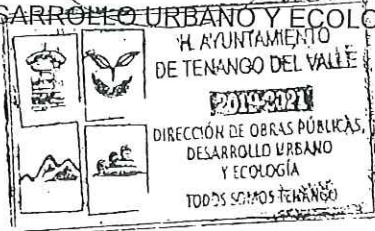 SARROLLO URBANO Y ECOLO
H. AYUNTAMIENTO
DE TENANGO DEL VALLE
2019-2021
DIRECCIÓN DE OBRAS PÚBLICAS,
DESARROLLO URBANO
Y ECOLOGÍA
TODOS SOMOS TENANGO